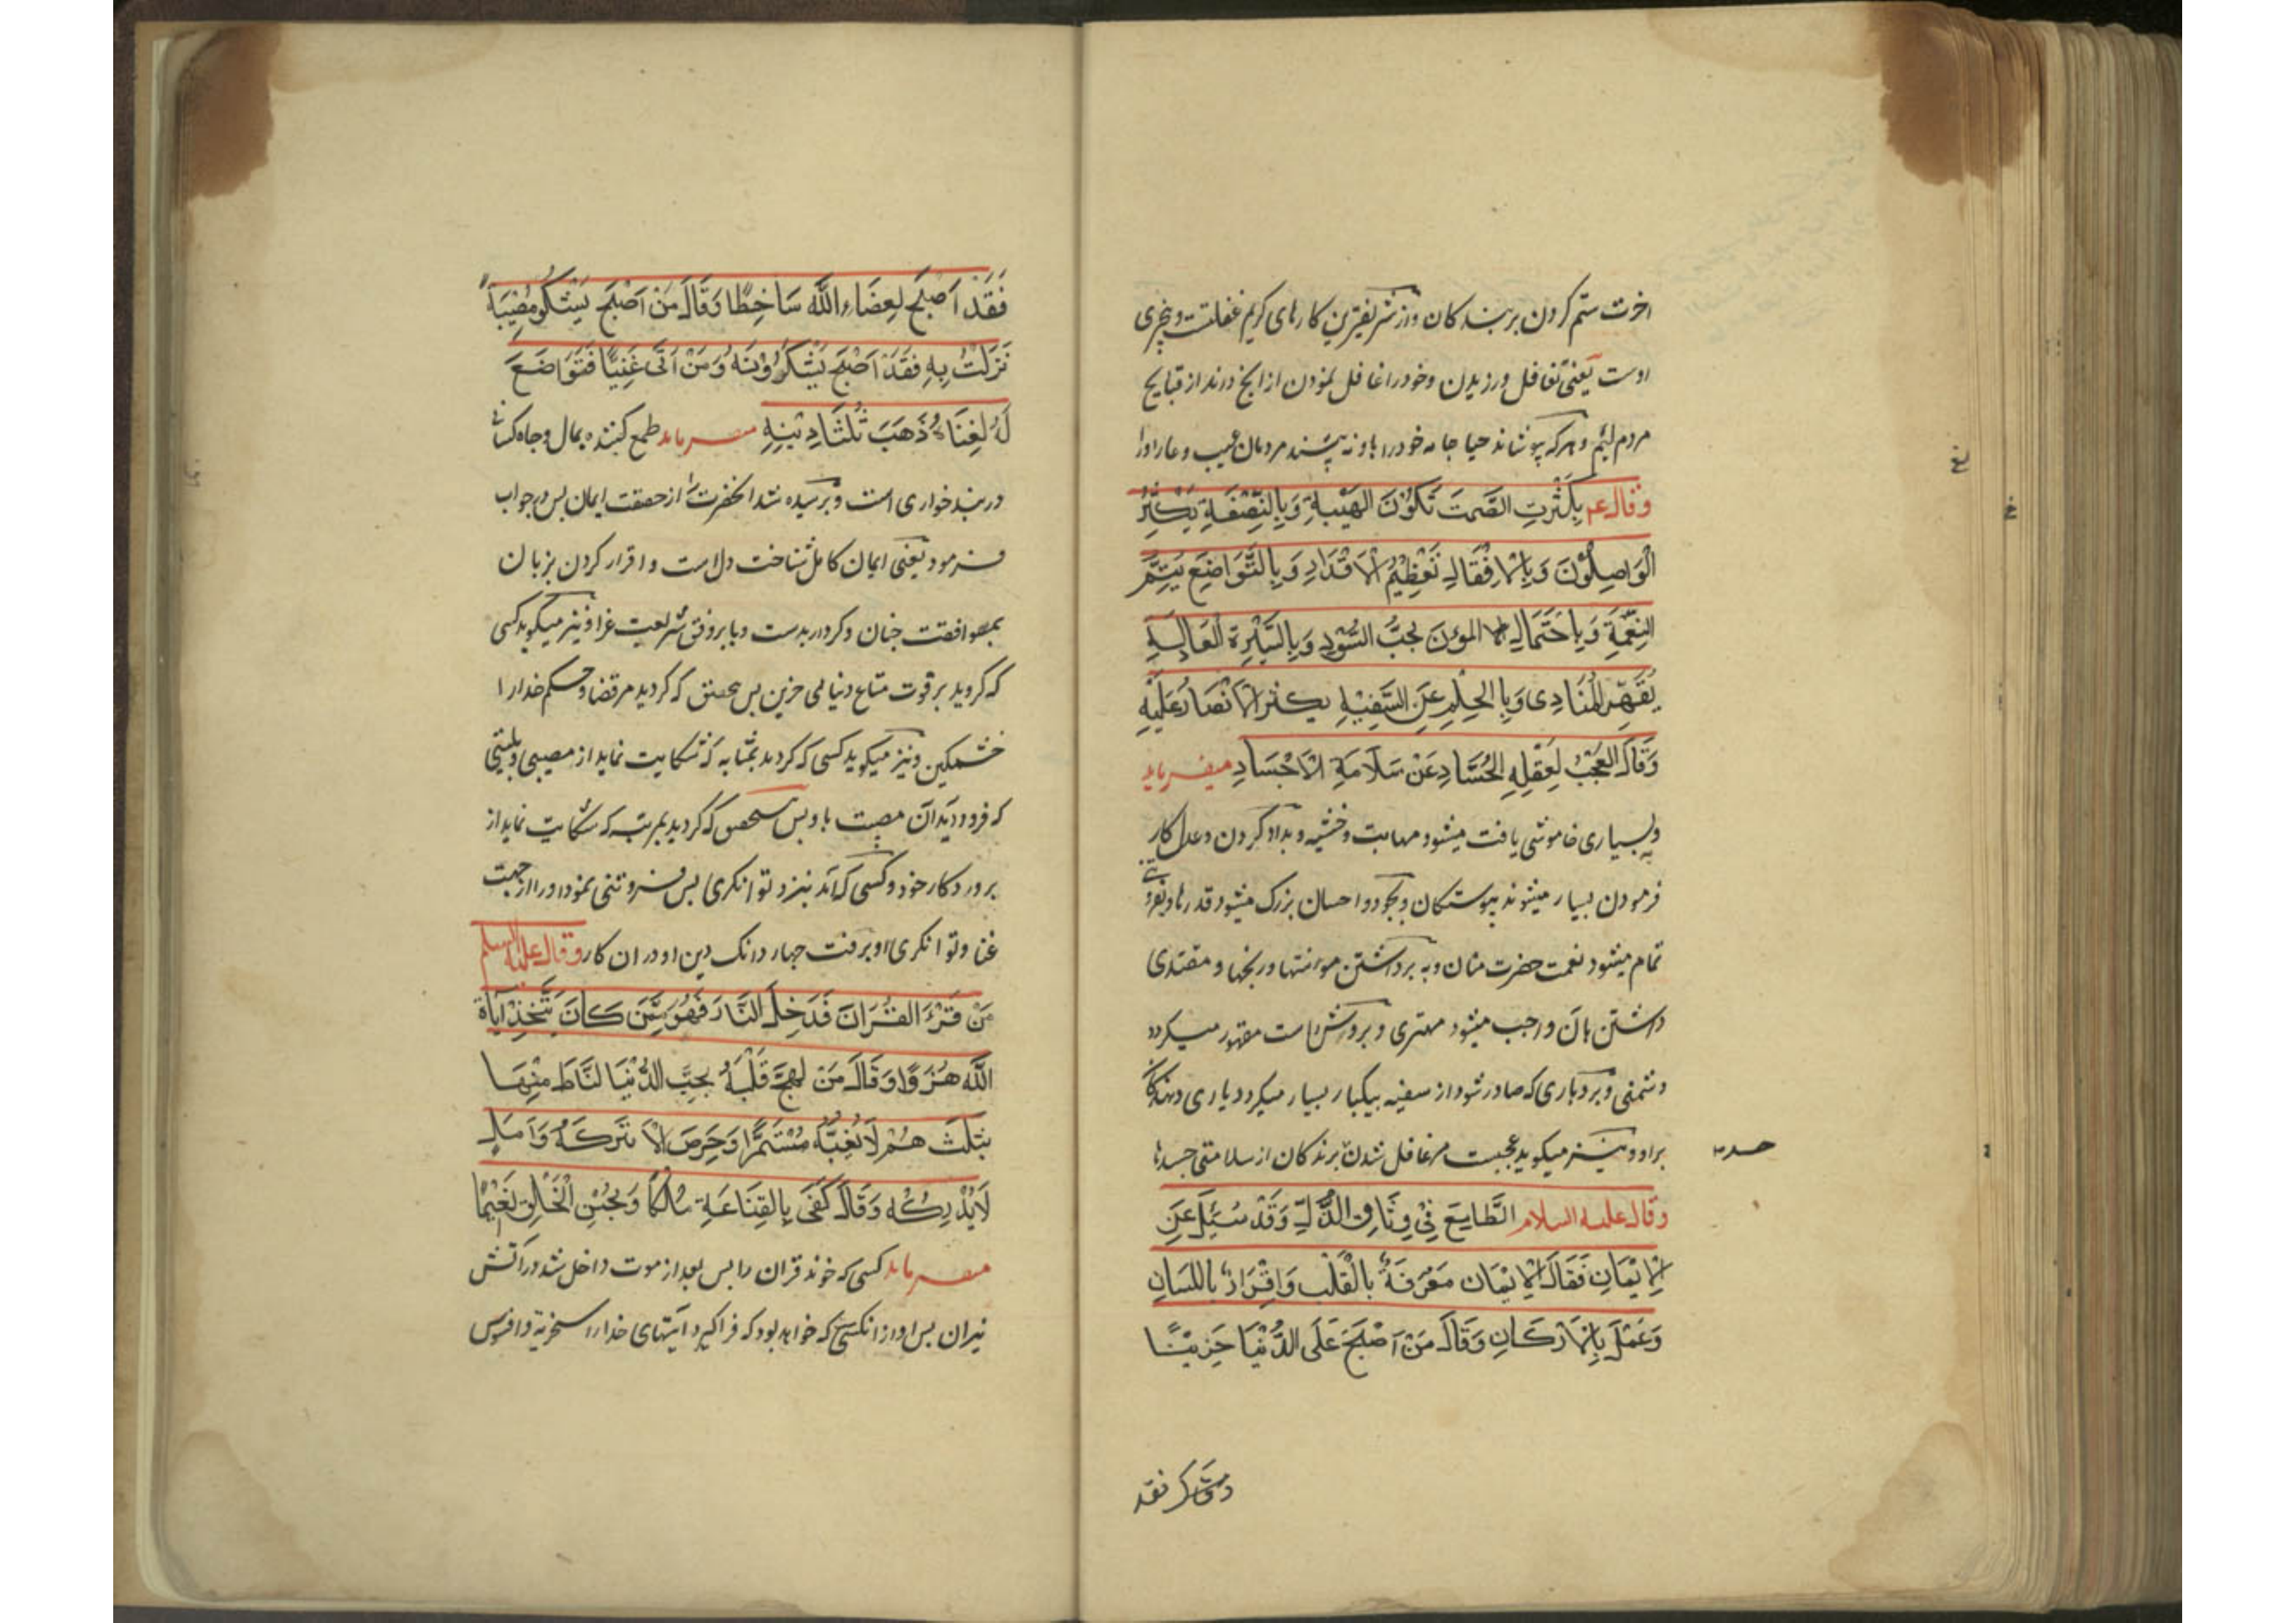 اخرت ستم کردن بر بندکان و از شریفترین کارهای کریم غفلت و بیخبری
اوست یعنی تغافل ورزیدن و خود را غافل نمودن از انچ درند از قبایح
مردم لئیم و هرکه بپوشاند حیا جامه خود را باو نه پسند مردمان عیب و عار او را
وقال عم بِکَثْرتِ الصَّمتَ تَکُونَ الهَیْبةِ وَبِالنِّصْفَةِ یَکثُرُ
الْوَاصِلُوْنَ وَبِالاِفْقَالِ تَعْظِیْمُ الاَقْدَارِ وَبِالتَّوَاضِعِ یَتِمُّ
النِعْمَةِ وَبِاحْتَمَالِ المؤنَ یجبُّ السُّوْدِد وَبِالسِّیْرة العَالِیَةِ
یُقَهِّرِ المُنَادِی وَبِالحِلْمِ عَنِ السَّفِیْهِ یکثر الاَنْصَارُ عَلَیْهِ
وَقَالَ العَجَبُ لِغَفْلِهِ الحُسَّادِ عَنْ سَلَامَةِ الاَجْسَادِ میفرماید
وبه بسیاری خاموشی یافت میشود مهابت و خشیه و بداد کردن و عدل کار
فرمودن بسیار میشوند پیوستکان و بجود و احسان بزرک میشود قدرها و بفروتنی
تمام میشود نعمت حضرت منان و به برداشتن موانتها و رنجها و مقتدی
داشتن بان واجب میشود مهتری و بروش راست مقهور میکردد
دشمنی و بردباری که صادر شود از سفیه بیکبار بسیار میکردد یاری دهندکان
بر او و نیز میکوید عجبست مر غافل شدن برندکان از سلامتی جسدها
حسد
وقال علیه السلام الطَّامِعَ فِیْ وِثَاقِ الذُّلِّ وَقَدْ سُئِلَ عَنِ
الاِیْمَانِ فَقَالَ الاِیْمَان مَعْرِفَةُ بِالْقَلْب وَاِقْرَارُ بِاللسَانِ
وَعَمْلَ بِالاَرْکَانِ وَقَالَ مَنْ اَصْبَحَ عَلَی الدُّنْیَا حَزِیْنًا
فقد
فَقَدْ اَصْبَحَ لِعِضَاءِ اللّٰه سَاخِطًا وَقَالَ مَنْ اَصْبَحَ یَشْکُو مُصِیْبَةً
نَزَلَتْ بِهِ فَقَدْ اَصْبَحَ یَشْکُوْ رَبَّهُ وَمَنْ اَتَی غَنِیًّا فَتَوَاضَعَ
لَهُ لِغِنَائهُ ذَهَبَ ثُلُثَا دِیْنِهِ میفرماید طمع کننده بمال و جاه کسانی
در بند خواری است و پرسیده شد انحضرت از حقیقت ایمان پس در جواب
فرمود یعنی ایمان کامل شناخت دل است و اقرار کردن بزبان
بموافقت جنان و کردار بدست و پا بر وفق شریعت غرا و نیز میکوید کسی
که کردید بر قوت متاع دنیائی حزین پس بتحقیق که کردید مر قضا و حکم خدا را
خشمکین و نیز میکوید کسی که کردید بمثابه که شکایت نماید از مصیبتی و بلیتی
که فرود دید آن مصیبت باو پس بتحقیق که کردید بمرتبه که شکایت نماید از
پروردکار خود و کسی که آمد بنزد توانکری پس فروتنی نمود او را از جهت
غنا و توانکری او برفت چهار دانک دین او در ان کار وقال علیه السلم
مَنْ قَرْءَ القُرْانَ فَدَخِلَ النَّارَ فَهُوَ مِمَّنَ کَانَ یَتَّخِذْ آیَاةِ
اللّٰه هُزُوًا وَقَالَ مَنْ لهِجَّ قَلْبَهُ بِحِبَّ الدُّنْیَا لتَاطَ مِنْهَا
بثلَثَ هَمْ لَا یُغِبُّهُ مُسْتَمرًّا وَحَرِصَ لاَ یَتْرکَهُ وَآمَلِ
لَایُدْرِکُه وَقَالَ کَفَی بِالقِنَاعَةِ مُلکًا وَبِحُسْنِ الْخَالِقِ نَعِیْمًا
میفرماید کسی که خوند قران را پس بعد از موت داخل شد در آتش
نیران پس او از انکسی که خواهد بود که فرا کیرد ایتهای خدا را سخریة و افسوس